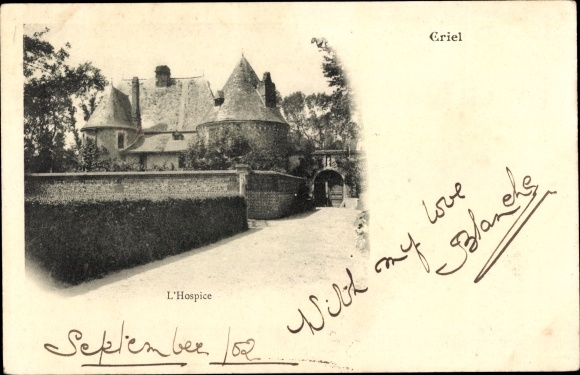 Criel
L'Hospice
With my love
Blanche
September /02